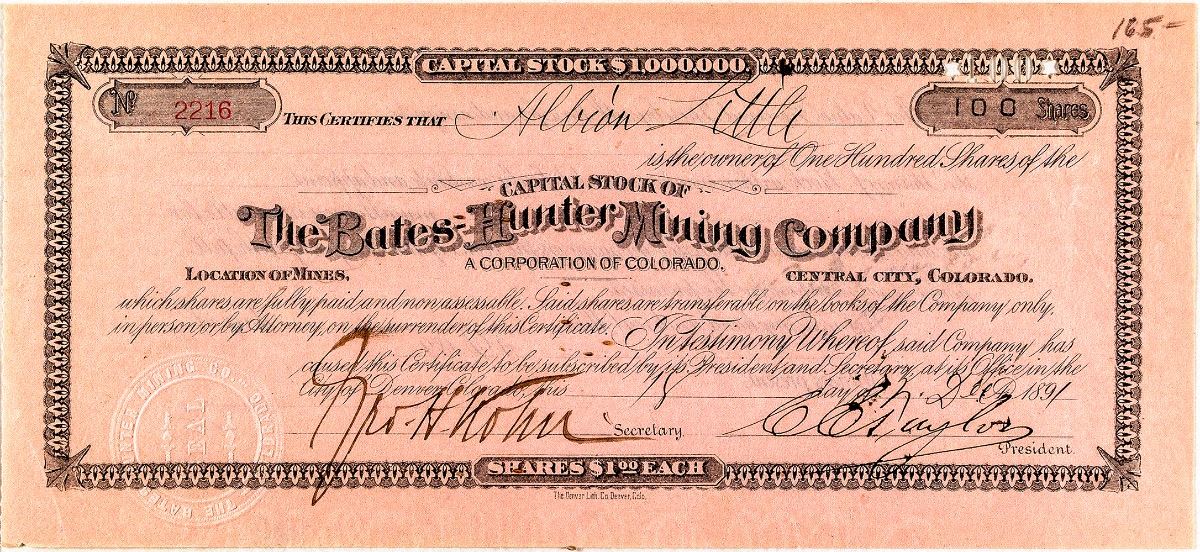 165-
CAPITAL STOCK $1,000,000.
100
No 2216
THIS CERTIFIES THAT Albion Little
100 Shares
is the owner of One Hundred Shares of the
CAPITAL STOCK OF
The Bates-Hunter Mining Company
A CORPORATION OF COLORADO.
LOCATION OF MINES, CENTRAL CITY, COLORADO.
which shares are fully paid and non assessable. Said shares are transferable on the books of the Company only,
in person or by Attorney, on the surrender of this Certificate. In Testimony Whereof said Company has
caused this Certificate to be subscribed by its President and Secretary, at its Office in the
City of Denver, Colorado, this 18 day of Dec 1891
Secretary.
President.
HUNTER MINING CO.
SEAL
THE BATES
SHARES $1.00 EACH
The Denver Lith. Co. Denver, Colo.